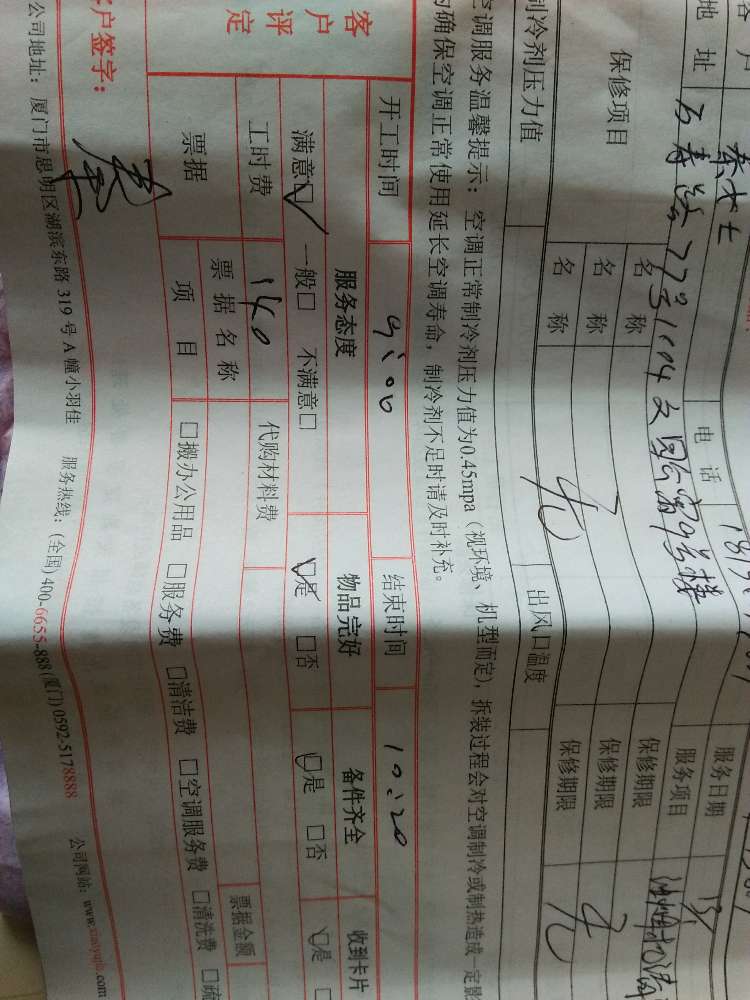 客户 电话 服务日期
地址 万寿路77号1104 服务项目
保修项目 名称 保修期限
名称 保修期限
名称 无 保修期限 无
制冷剂压力值 出风口温度
空调服务温馨提示：空调正常制冷剂压力值为0.45mpa（视环境、机型而定），拆装过程会对空调制冷或制热造成 定影
确保空调正常使用延长空调寿命，制冷剂不足时请及时补充。
客户评定
开工时间 9:00 结束时间 10:20
服务态度 物品完好 备件齐全 收到卡片
满意☑ 一般□ 不满意□ ☑是 □否 ☑是 □否 ☑是
工时费 140 代购材料费
票据 票据名称 票据金额
项目 □搬办公用品 □服务费 □清洁费 □空调服务费 □清洗费 □疏
客户签字：
公司地址：厦门市思明区湖滨东路 319 号 A 幢小羽佳 服务热线：(全国) 400-6655-888 (厦门) 0592-5178888 公司网站：www.xiaoyujia.com